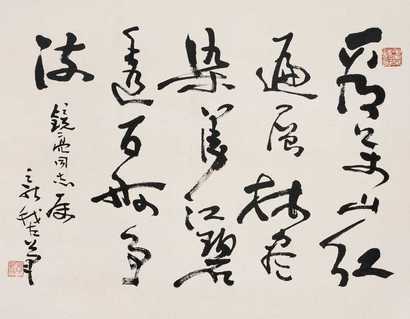 看萬山红
遍層林尽
染漫江碧
透百舸争
流
鏡亮同志属